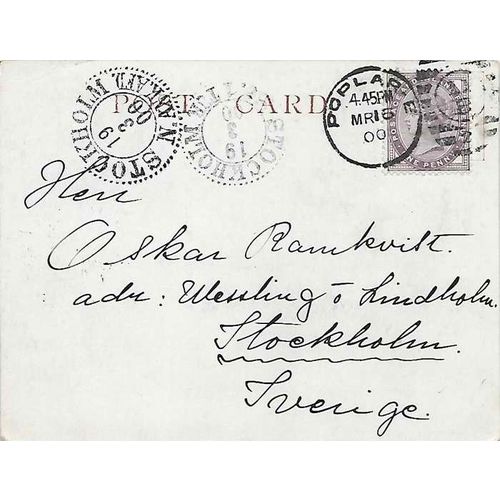 POST CARD
STOCKHOLM
19
3
00
STOCKHOLM
19
3
POPLAR E
4.45PM
MR 16
00
ONE PENNY
Herr
Oskar Ramkvist.
adr: Wessling o Lindholm.
Stockholm.
Sverige.